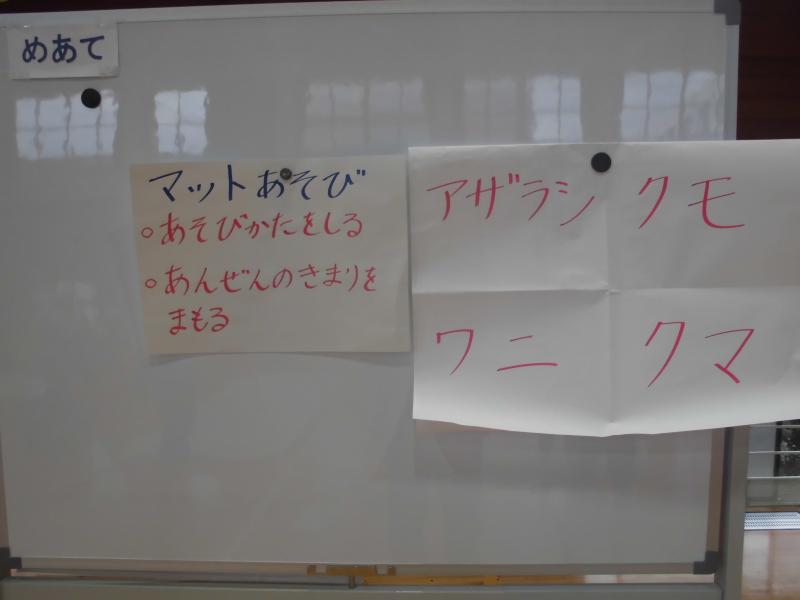 めあて
マットあそび
○あそびかたをしる
○あんぜんのきまりを
まもる
アザラシ クモ
ワニ クマ